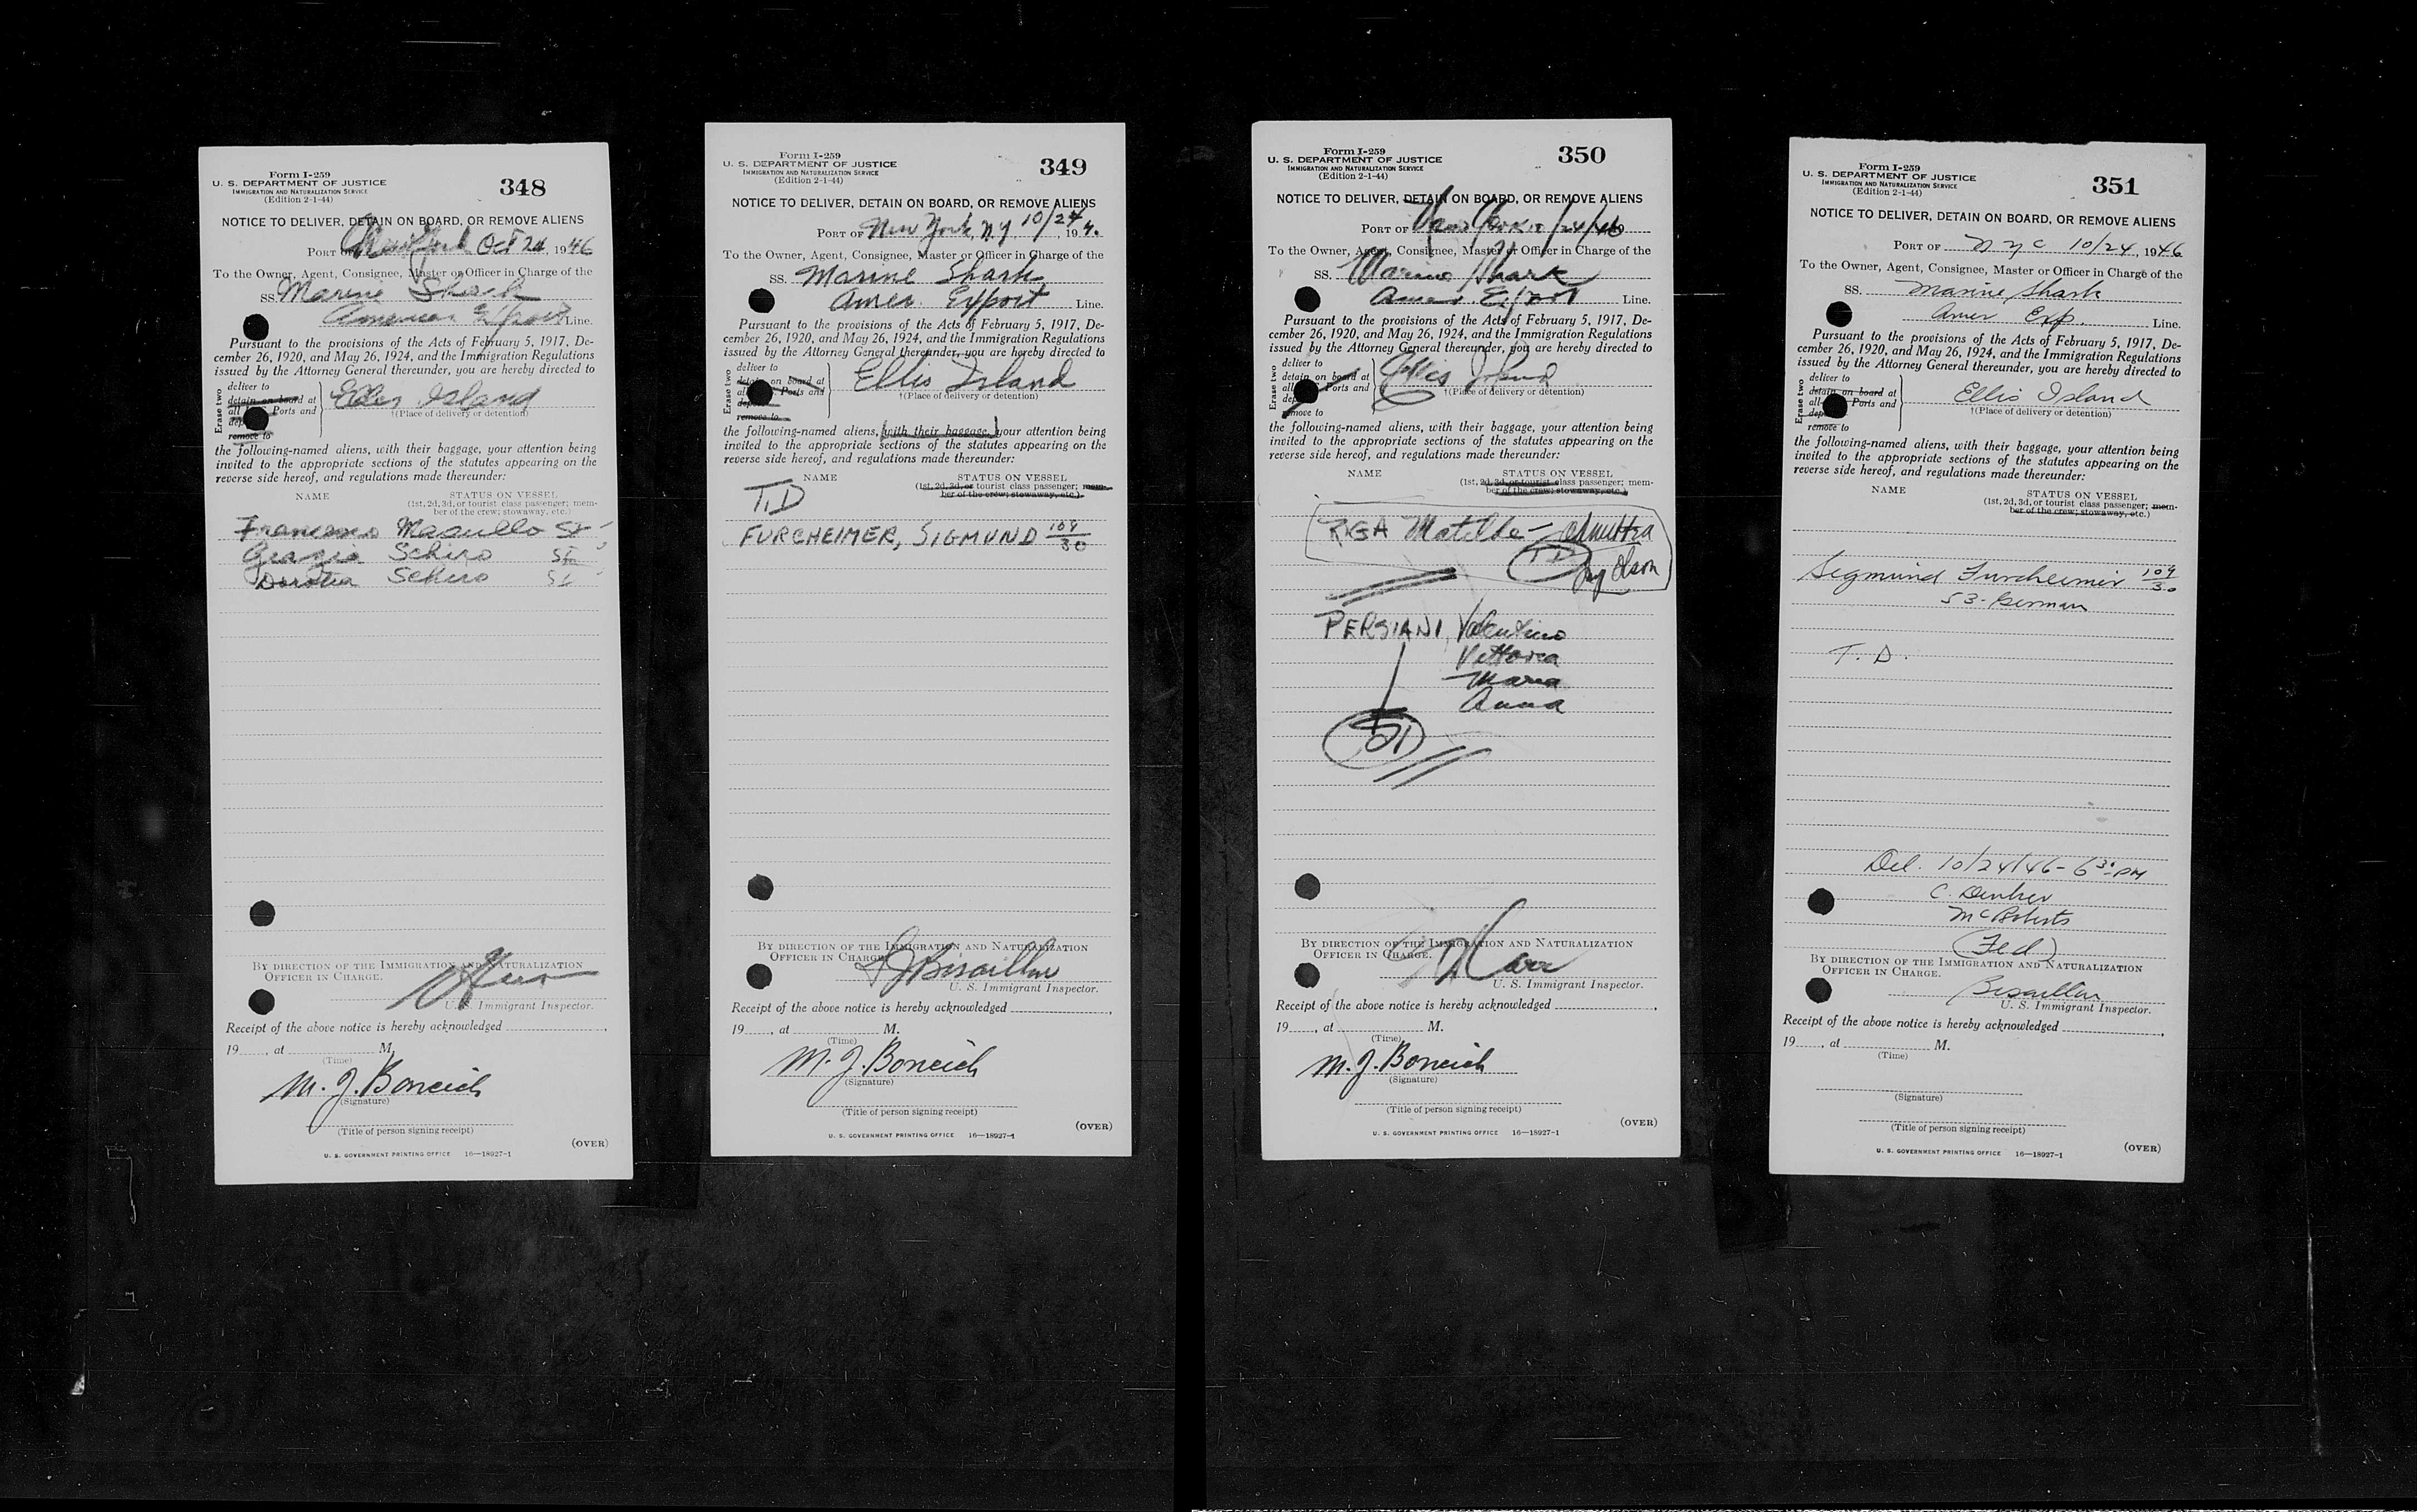 Form I-259
U. S. DEPARTMENT OF JUSTICE
IMMIGRATION AND NATURALIZATION SERVICE
(Edition 2-1-44)
348
NOTICE TO DELIVER, DETAIN ON BOARD, OR REMOVE ALIENS
PORT OF New York Oct 24, 1946
To the Owner, Agent, Consignee, Master or Officer in Charge of the
SS. Marine Shark
American Export Line.
Pursuant to the provisions of the Acts of February 5, 1917, De-
cember 26, 1920, and May 26, 1924, and the Immigration Regulations
issued by the Attorney General thereunder, you are hereby directed to
Erase two
deliver to
detain on board at
all Ports and
dep
remove to
Ellis Island
†(Place of delivery or detention)
the following-named aliens, with their baggage, your attention being
invited to the appropriate sections of the statutes appearing on the
reverse side hereof, and regulations made thereunder:
NAME
STATUS ON VESSEL
(1st, 2d, 3d, or tourist class passenger; mem-
ber of the crew; stowaway, etc.)
Francesco SI
Grazia Schiro SI
Dorotea Schiro SI
BY DIRECTION OF THE IMMIGRATION AND NATURALIZATION
OFFICER IN CHARGE.
U. S. Immigrant Inspector.
Receipt of the above notice is hereby acknowledged
19, at M.
(Time)
M. J. Boncich
(Signature)
(Title of person signing receipt)
(OVER)
U. S. GOVERNMENT PRINTING OFFICE 16—18927-1
Form I-259
U. S. DEPARTMENT OF JUSTICE
IMMIGRATION AND NATURALIZATION SERVICE
(Edition 2-1-44)
349
NOTICE TO DELIVER, DETAIN ON BOARD, OR REMOVE ALIENS
PORT OF New York, N.Y. 10/24, 194
To the Owner, Agent, Consignee, Master or Officer in Charge of the
SS. Marine Shark
Amer. Export Line.
Pursuant to the provisions of the Acts of February 5, 1917, De-
cember 26, 1920, and May 26, 1924, and the Immigration Regulations
issued by the Attorney General thereunder, you are hereby directed to
Erase two
deliver to
detain on board at
al Ports and
dep
remove to
Ellis Island
†(Place of delivery or detention)
the following-named aliens, with their baggage, your attention being
invited to the appropriate sections of the statutes appearing on the
reverse side hereof, and regulations made thereunder:
NAME
STATUS ON VESSEL
(1st, 2d, 3d, or tourist class passenger; mem-
ber of the crew; stowaway, etc.)
T.D
FURCHEIMER, SIGMUND 109/30
BY DIRECTION OF THE IMMIGRATION AND NATURALIZATION
OFFICER IN CHARGE
Bisaillon
U. S. Immigrant Inspector.
Receipt of the above notice is hereby acknowledged
19, at M.
(Time)
M. J. Boncich
(Signature)
(Title of person signing receipt)
(OVER)
U. S. GOVERNMENT PRINTING OFFICE 16—18927-1
Form I-259
U. S. DEPARTMENT OF JUSTICE
IMMIGRATION AND NATURALIZATION SERVICE
(Edition 2-1-44)
350
NOTICE TO DELIVER, DETAIN ON BOARD, OR REMOVE ALIENS
PORT OF New York 10/24/46
To the Owner, Agent, Consignee, Master or Officer in Charge of the
SS. Marine Shark
Amer. Export Line.
Pursuant to the provisions of the Acts of February 5, 1917, De-
cember 26, 1920, and May 26, 1924, and the Immigration Regulations
issued by the Attorney General thereunder, you are hereby directed to
Erase two
deliver to
detain on board at
all Ports and
dep
remove to
Ellis Island
†(Place of delivery or detention)
the following-named aliens, with their baggage, your attention being
invited to the appropriate sections of the statutes appearing on the
reverse side hereof, and regulations made thereunder:
NAME
STATUS ON VESSEL
(1st, 2d, 3d, or tourist class passenger; mem-
ber of the crew; stowaway, etc.)
Matilde —
TD
Olson
PERSIANI, Valentino
Vittoria
Maria
Anna
SI
BY DIRECTION OF THE IMMIGRATION AND NATURALIZATION
OFFICER IN CHARGE.
Carr
U. S. Immigrant Inspector.
Receipt of the above notice is hereby acknowledged
19, at M.
(Time)
M. J. Boncich
(Signature)
(Title of person signing receipt)
(OVER)
U. S. GOVERNMENT PRINTING OFFICE 16—18927-1
Form I-259
U. S. DEPARTMENT OF JUSTICE
IMMIGRATION AND NATURALIZATION SERVICE
(Edition 2-1-44)
351
NOTICE TO DELIVER, DETAIN ON BOARD, OR REMOVE ALIENS
PORT OF N Y C 10/24, 1946
To the Owner, Agent, Consignee, Master or Officer in Charge of the
SS. Marine Shark
Amer Exp. Line.
Pursuant to the provisions of the Acts of February 5, 1917, De-
cember 26, 1920, and May 26, 1924, and the Immigration Regulations
issued by the Attorney General thereunder, you are hereby directed to
Erase two
deliver to
detain on board at
all Ports and
dep
remove to
Ellis Island
†(Place of delivery or detention)
the following-named aliens, with their baggage, your attention being
invited to the appropriate sections of the statutes appearing on the
reverse side hereof, and regulations made thereunder:
NAME
STATUS ON VESSEL
(1st, 2d, 3d, or tourist class passenger; mem-
ber of the crew; stowaway, etc.)
Sigmund Furcheimer 109/30
53-German
T. D.
Del. 10/24/46 - 6 30 PM
C.
McRoberts
(Fed)
BY DIRECTION OF THE IMMIGRATION AND NATURALIZATION
OFFICER IN CHARGE.
Bisaillon
U. S. Immigrant Inspector.
Receipt of the above notice is hereby acknowledged
19, at M.
(Time)
(Signature)
(Title of person signing receipt)
(OVER)
U. S. GOVERNMENT PRINTING OFFICE 16—18927-1